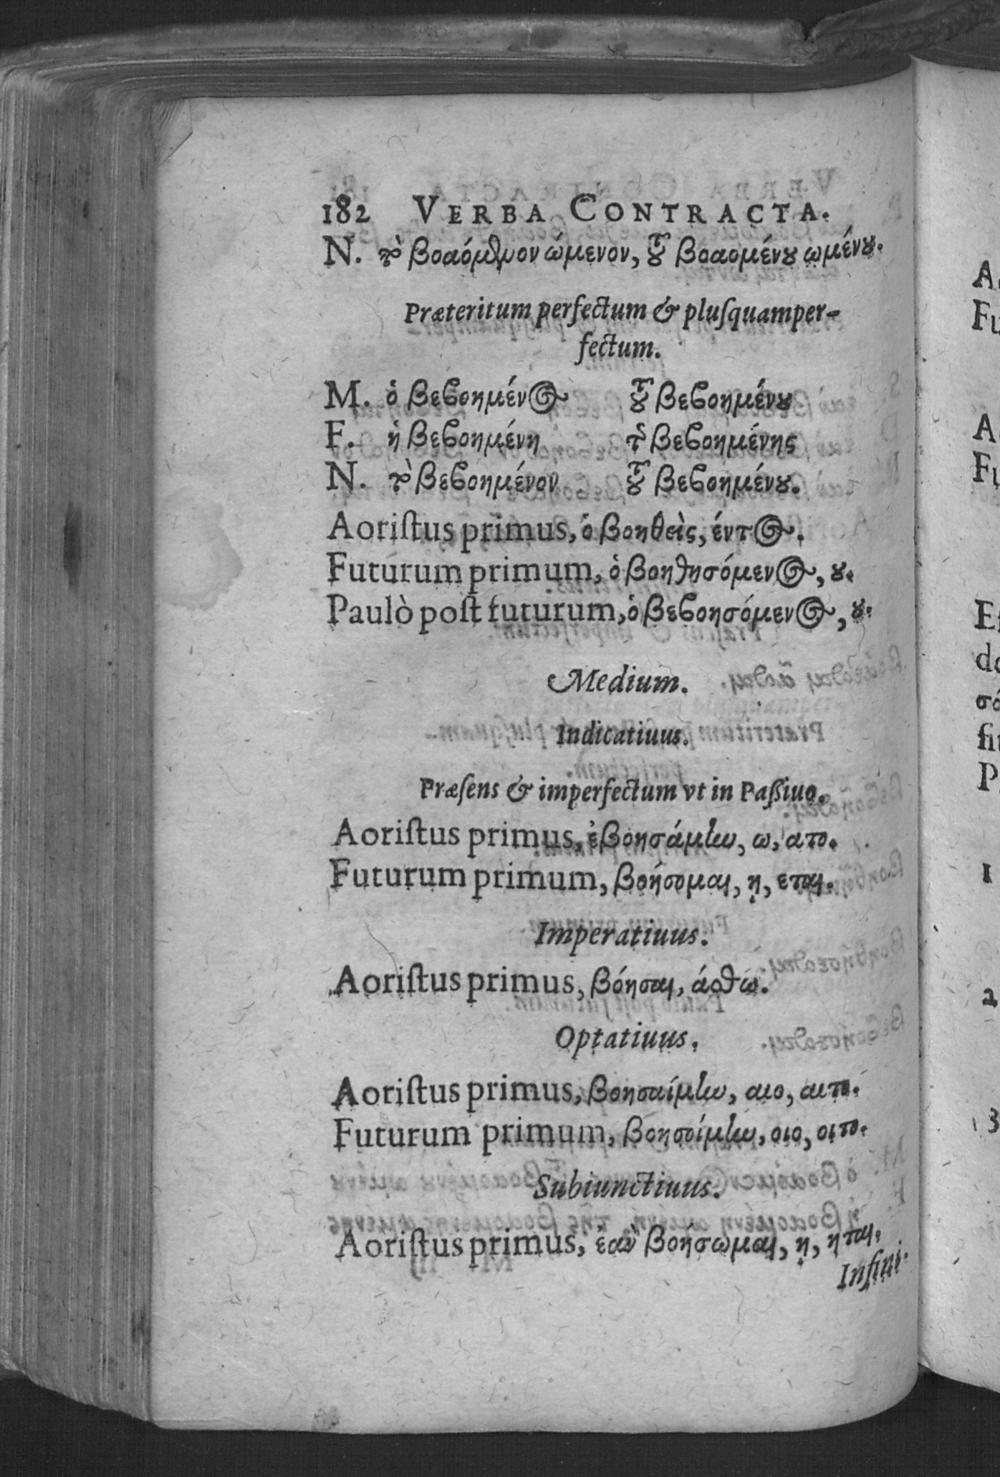 182 VERBA CONTRACTA.
N. τὸ βοαόμενον ώμενον, τοῦ βοαομένου ωμένου.
Præteritum perfectum & pluſquamper-
fectum.
M. ὁ βεβοημένος τοῦ βεβοημένου
F. ἡ βεβοημένη τῆς βεβοημένης
N. τὸ βεβοημένον τοῦ βεβοημένου.
Aoriſtus primus, ὁ βοηθεὶς, έντος.
Futurum primum, ὁ βοηθησόμενος, ου.
Paulò poſt futurum, ὁ βεβοησόμενος, ου.
Medium.
Indicatiuus.
Præſens & imperfectum vt in Paſſiuo.
Aoriſtus primus, ἐβοησάμην, ω, ατο.
Futurum primum, βοήσομαι, ῃ, εται.
Imperatiuus.
Aoriſtus primus, βόησαι, άσθω.
Optatiuus.
Aoriſtus primus, βοησαίμην, αιο, αιτο.
Futurum primum, βοησοίμην, οιο, οιτο.
Subiunctiuus.
Aoriſtus primus, ἐὰν βοήσωμαι, ῃ, ηται.
Infini-